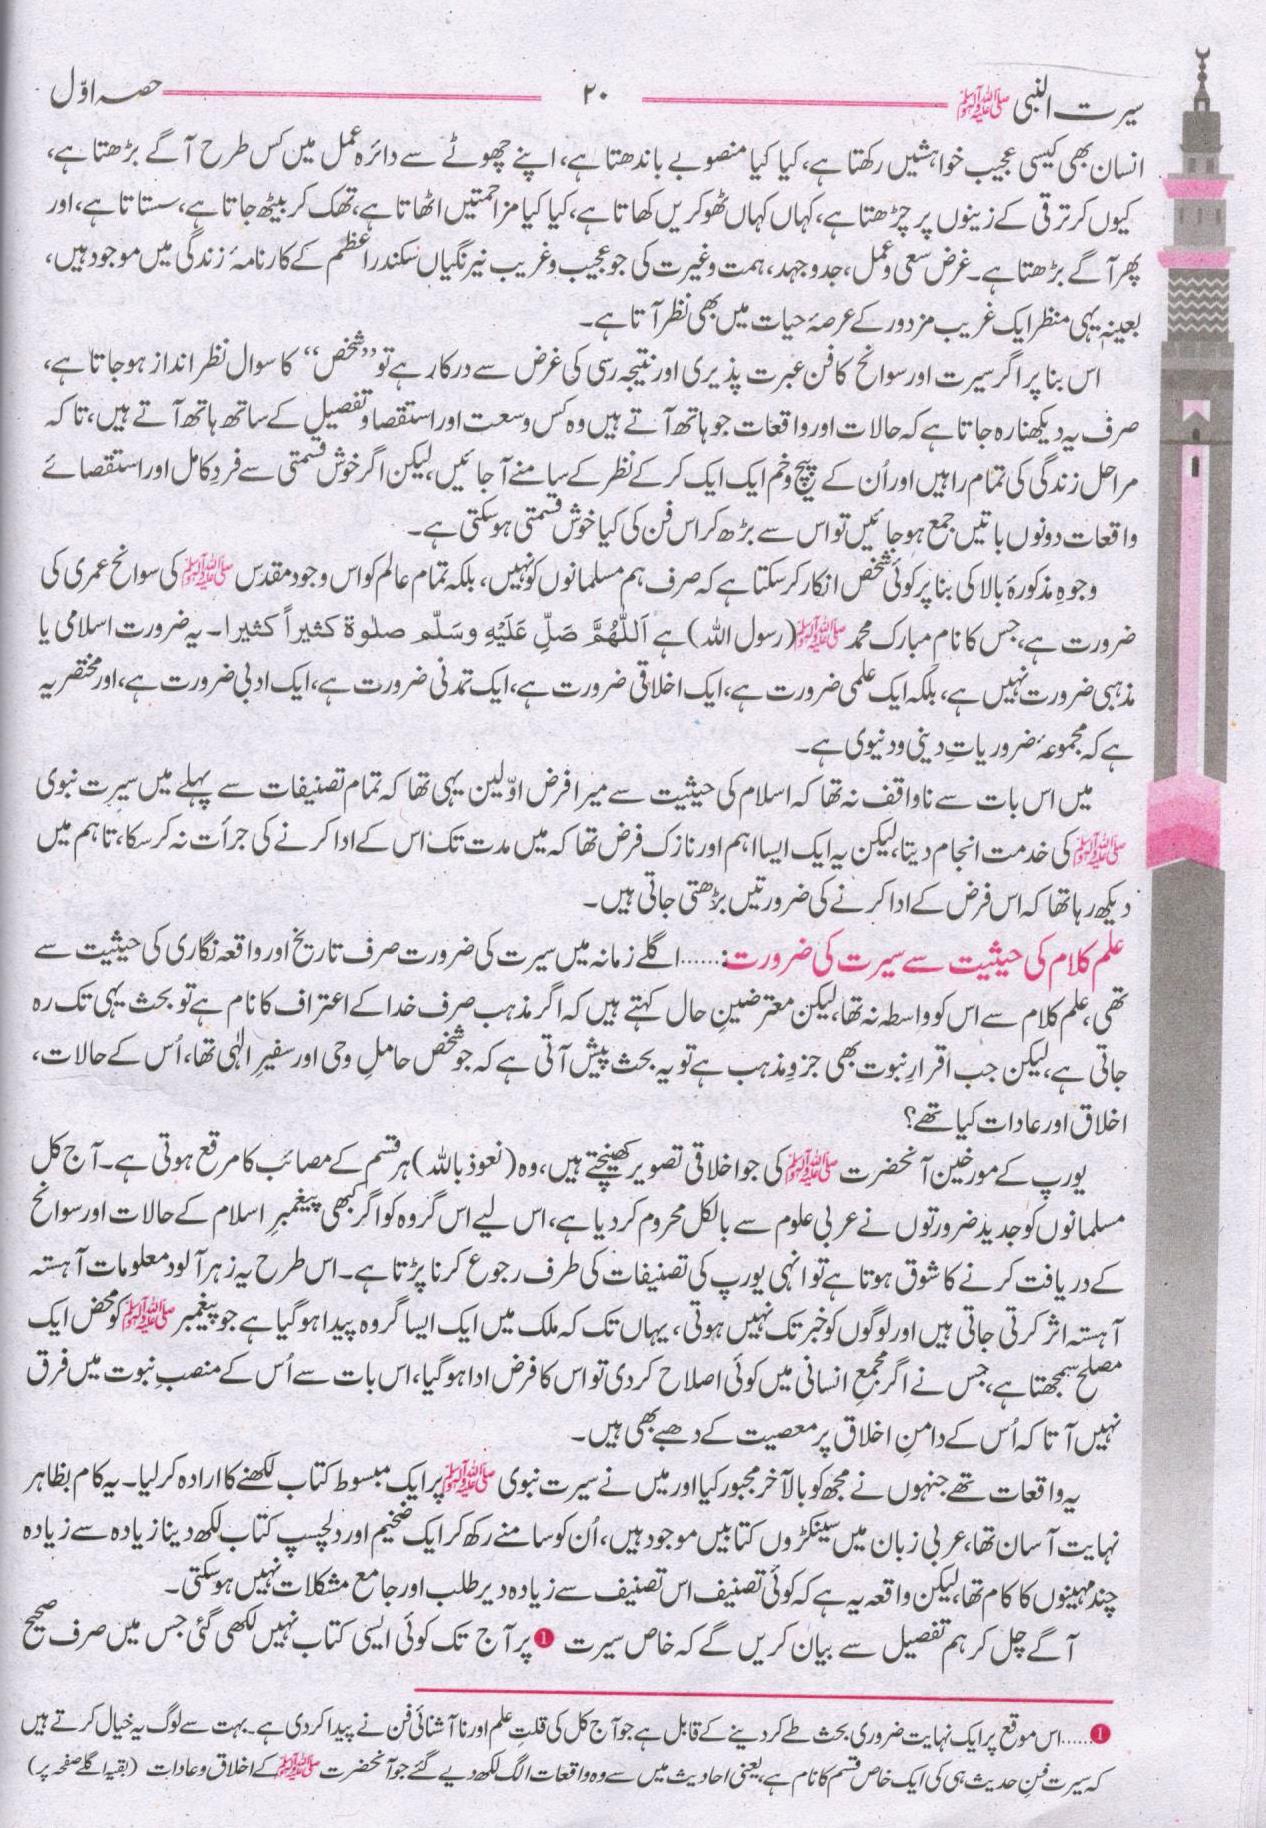 سیرت النبی ﷺ ۲۰ حصہ اوّل
انسان بھی کیسی عجیب خواہشیں رکھتا ہے، کیا کیا منصوبے باندھتا ہے، اپنے چھوٹے سے دائرہ عمل میں کس طرح آگے بڑھتا ہے،
کیوں کر ترقی کے زینوں پر چڑھتا ہے، کہاں کہاں ٹھوکریں کھاتا ہے، کیا کیا مزاحمتیں اٹھاتا ہے، تھک کر بیٹھ جاتا ہے، سستاتا ہے، اور
پھر آگے بڑھتا ہے۔ غرض سعی وعمل، جدوجہد، ہمت وغیرت کی جو عجیب وغریب نیرنگیاں سکندر اعظم کے کارنامۂ زندگی میں موجود ہیں،
بعینہٖ یہی منظر ایک غریب مزدور کے عرصۂ حیات میں بھی نظر آتا ہے۔
اس بنا پر اگر سیرت اور سوانح کا فن عبرت پذیری اور نتیجہ رسی کی غرض سے درکار ہے تو ”شخص“ کا سوال نظر انداز ہو جاتا ہے،
صرف یہ دیکھنا رہ جاتا ہے کہ حالات اور واقعات جو ہاتھ آتے ہیں وہ کس وسعت اور استقصا و تفصیل کے ساتھ ہاتھ آتے ہیں، تا کہ
مراحل زندگی کی تمام راہیں اور اُن کے پیچ وخم ایک ایک کر کے نظر کے سامنے آ جائیں، لیکن اگر خوش قسمتی سے فردِ کامل اور استقصائے
واقعات دونوں باتیں جمع ہو جائیں تو اس سے بڑھ کر اس فن کی کیا خوش قسمتی ہو سکتی ہے۔
وجوہِ مذکورۂ بالا کی بنا پر کوئی شخص انکار کر سکتا ہے کہ صرف ہم مسلمانوں کو نہیں، بلکہ تمام عالم کو اس وجود مقدس ﷺ کی سوانح عمری کی
ضرورت ہے، جس کا نام مبارک محمد ﷺ (رسول اللہ) ہے اَللّٰھُمَّ صَلِّ عَلَيْهِ وسَلّم صلٰوة كثيراً كثيرا۔ یہ ضرورت اسلامی یا
مذہبی ضرورت نہیں ہے، بلکہ ایک علمی ضرورت ہے، ایک اخلاقی ضرورت ہے، ایک تمدنی ضرورت ہے، ایک ادبی ضرورت ہے، اور مختصر یہ
ہے کہ مجموعۂ ضروریاتِ دینی ودنیوی ہے۔
میں اس بات سے ناواقف نہ تھا کہ اسلام کی حیثیت سے میرا فرض اوّلین یہی تھا کہ تمام تصنیفات سے پہلے میں سیرت نبوی
ﷺ کی خدمت انجام دیتا، لیکن یہ ایک ایسا اہم اور نازک فرض تھا کہ میں مدت تک اس کے ادا کرنے کی جرأت نہ کر سکا، تاہم میں
دیکھ رہا تھا کہ اس فرض کے ادا کرنے کی ضرورتیں بڑھتی جاتی ہیں۔
علم کلام کی حیثیت سے سیرت کی ضرورت: ......اگلے زمانہ میں سیرت کی ضرورت صرف تاریخ اور واقعہ نگاری کی حیثیت سے
تھی، علم کلام سے اس کو واسطہ نہ تھا، لیکن معترضینِ حال کہتے ہیں کہ اگر مذہب صرف خدا کے اعتراف کا نام ہے تو بحث یہی تک رہ
جاتی ہے، لیکن جب اقرارِ نبوت بھی جزوِ مذہب ہے تو یہ بحث پیش آتی ہے کہ جو شخص حاملِ وحی اور سفیرِ الٰہی تھا، اُس کے حالات،
اخلاق اور عادات کیا تھے؟
یورپ کے مورخین آنحضرت ﷺ کی جو اخلاقی تصویر کھینچتے ہیں، وہ (نعوذ باللہ) ہر قسم کے مصائب کا مرقع ہوتی ہے۔ آج کل
مسلمانوں کو جدید ضرورتوں نے عربی علوم سے بالکل محروم کر دیا ہے، اس لیے اس گروہ کو اگر کبھی پیغمبرِ اسلام کے حالات اور سوانح
کے دریافت کرنے کا شوق ہوتا ہے تو انہی یورپ کی تصنیفات کی طرف رجوع کرنا پڑتا ہے۔ اس طرح یہ زہر آلود معلومات آہستہ
آہستہ اثر کرتی جاتی ہیں اور لوگوں کو خبر تک نہیں ہوتی، یہاں تک کہ ملک میں ایک ایسا گروہ پیدا ہو گیا ہے جو پیغمبر ﷺ کو محض ایک
مصلح سمجھتا ہے، جس نے اگر مجمعِ انسانی میں کوئی اصلاح کر دی تو اس کا فرض ادا ہو گیا، اس بات سے اُس کے منصبِ نبوت میں فرق
نہیں آتا کہ اُس کے دامنِ اخلاق پر معصیت کے دھبے بھی ہیں۔
یہ واقعات تھے جنہوں نے مجھ کو بالآخر مجبور کیا اور میں نے سیرت نبوی ﷺ پر ایک مبسوط کتاب لکھنے کا ارادہ کر لیا۔ یہ کام بظاہر
نہایت آسان تھا، عربی زبان میں سینکڑوں کتابیں موجود ہیں، اُن کو سامنے رکھ کر ایک ضخیم اور دلچسپ کتاب لکھ دینا زیادہ سے زیادہ
چند مہینوں کا کام تھا، لیکن واقعہ یہ ہے کہ کوئی تصنیف اس تصنیف سے زیادہ دیر طلب اور جامع مشکلات نہیں ہو سکتی۔
آگے چل کر ہم تفصیل سے بیان کریں گے کہ خاص سیرت ❶ پر آج تک کوئی ایسی کتاب نہیں لکھی گئی جس میں صرف صحیح
❶ ......اس موقع پر ایک نہایت ضروری بحث طے کر دینے کے قابل ہے جو آج کل کی قلتِ علم اور نا آشنائی فن نے پیدا کر دی ہے۔ بہت سے لوگ یہ خیال کرتے ہیں
کہ سیرت فنِ حدیث ہی کی ایک خاص قسم کا نام ہے، یعنی احادیث میں سے وہ واقعات الگ لکھ دیے گئے جو آنحضرت ﷺ کے اخلاق وعادات (بقیہ اگلے صفحہ پر)